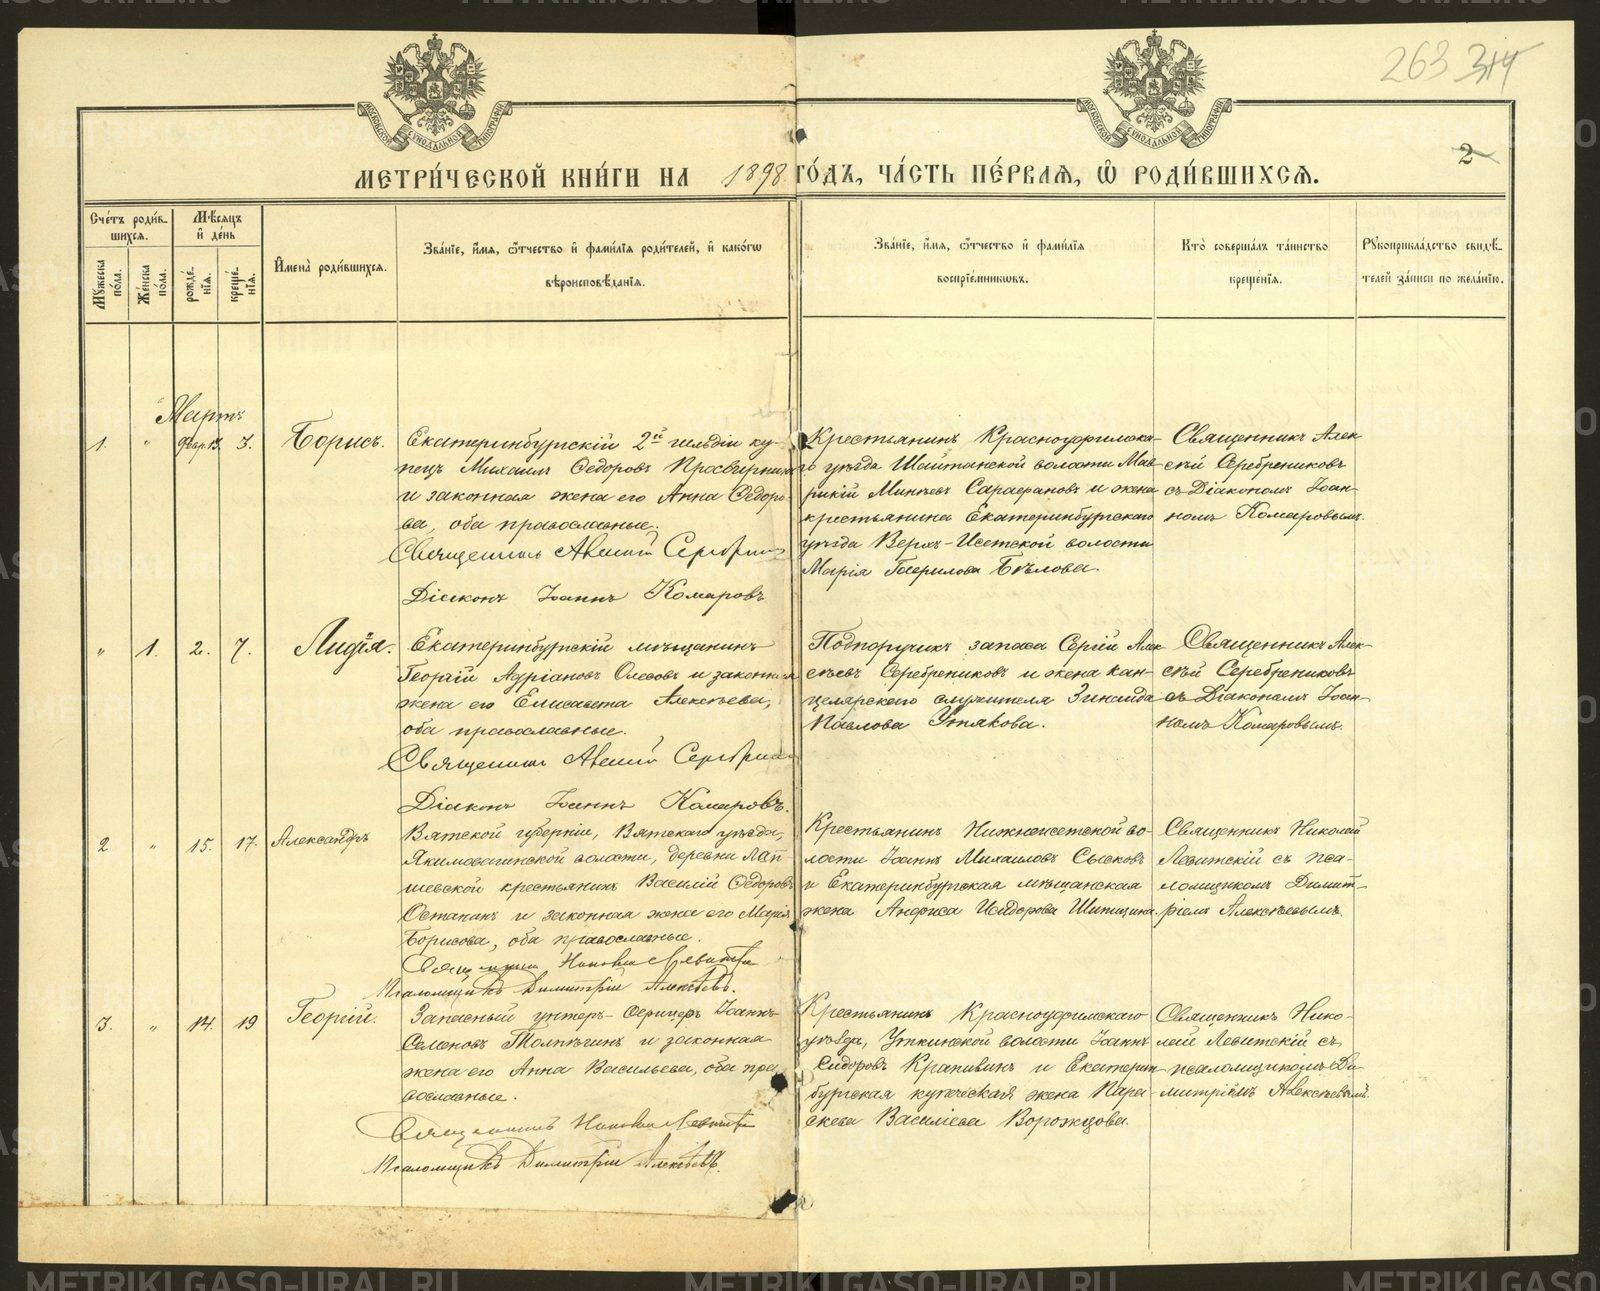 263 314
МОСКОВСКОЙ СѴНОДАЛЬНОЙ ТИПОГРАФІИ
МОСКОВСКОЙ СѴНОДАЛЬНОЙ ТИПОГРАФІИ
2
МЕТРИ́ЧЕСКОЙ КНИ́ГИ НА 1898 ГО́ДЪ, ЧА́СТЬ ПЕ́РВАѦ, Ѡ҆ РОДИ́ВШИХСѦ.
Сче́тъ роди́в-
шихсѧ.
Мꙋ́жеска по́ла.
Же́нска по́ла.
Мѣ́сѧцъ
и҆ де́нь
рожде́-
нїѧ.
креще́-
нїѧ.
И҆мена̀ роди́вшихсѧ.
Зва́нїе, и҆́мѧ, ѻ҆́тчество и҆ фами́лїѧ роди́телей, и҆ како́гѡ
вѣроисповѣ́данїѧ.
Зва́нїе, и҆́мѧ, ѻ҆́тчество и҆ фами́лїѧ
воспрїе́мниковъ.
Кто̀ соверша́лъ та́инство
креще́нїѧ.
Рꙋкоприкла́дство свидѣ́-
телей за́писи по жела́нїю.
Мартъ
1. " Февр. 13. 3. Борисъ.
Екатеринбургскій 2й гильдіи ку-
пецъ Михаилъ Ѳедоровъ Просвирнинъ
и законная жена его Анна Ѳедоро-
ва, оба православные.
Священникъ Алексій Серебрен
Діаконъ Іоаннъ Комаровъ
Крестьянинъ Красноуфимска-
го уѣзда Шайтанской волости Мав-
рикій Минѣевъ Сарафановъ и жена
крестьянина Екатеринбургскаго
уѣзда Верхъ-Исетской волости
Марія Гаврилова Бѣлова.
Священникъ Алек-
сѣй Серебрениковъ
съ Діакономъ Іоан-
номъ Комаровымъ.
" 1. 2. 7. Лидія.
Екатеринбургскій мѣщанинъ
Георгій Адріановъ Олесовъ и законная
жена его Елисавета Алексѣева,
оба православные.
Священникъ Алексій Серебрен
Діаконъ Іоаннъ Комаровъ.
Подпоручикъ запаса Сергій Алек-
сѣевъ Серебрениковъ и жена кан-
целярскаго служителя Зинаида
Павлова Утякова.
Священникъ Алек-
сѣй Серебрениковъ
съ Діакономъ Іоан-
номъ Комаровымъ.
2 " 15. 17. Александръ
Вятской губерніи, Вятскаго уѣзда,
Якимовагинской волости, деревни Лап-
шевской крестьянинъ Василій Ѳедоровъ
Останинъ и законная жена его Марія
Борисова, оба православные.
Священникъ Николай Левитскій
Псаломщикъ Димитрій Алексѣевъ.
Крестьянинъ Нижнеисетской во-
лости Іоаннъ Михаиловъ Сысковъ
и Екатеринбургская мѣщанская
жена Анфиса Исидорова Шипицина.
Священникъ Николай
Левитскій съ пса-
ломщикомъ Димит-
ріемъ Алексѣевымъ.
3. " 14. 19 Георгій.
Запасный унтеръ-Офицеръ Іоаннъ
Семеновъ Толпѣгинъ и законная
жена его Анна Васильева, оба пра-
вославные.
Священникъ Николай Левитскій
Псаломщикъ Димитрій Алексѣевъ.
Крестьянинъ Красноуфимскаго
уѣзда, Уткинской волости Іоаннъ
Сидоровъ Крапивинъ и Екатерин-
бургская купеческая жена Пара-
скева Василіева Ворожцова.
Священникъ Нико-
лай Левитскій съ
псаломщикомъ Ди-
митріемъ Алексѣевымъ.
METRIKI.GASO-URAL.RU METRIKI.GASO-URAL.RU METRIKI.GASO